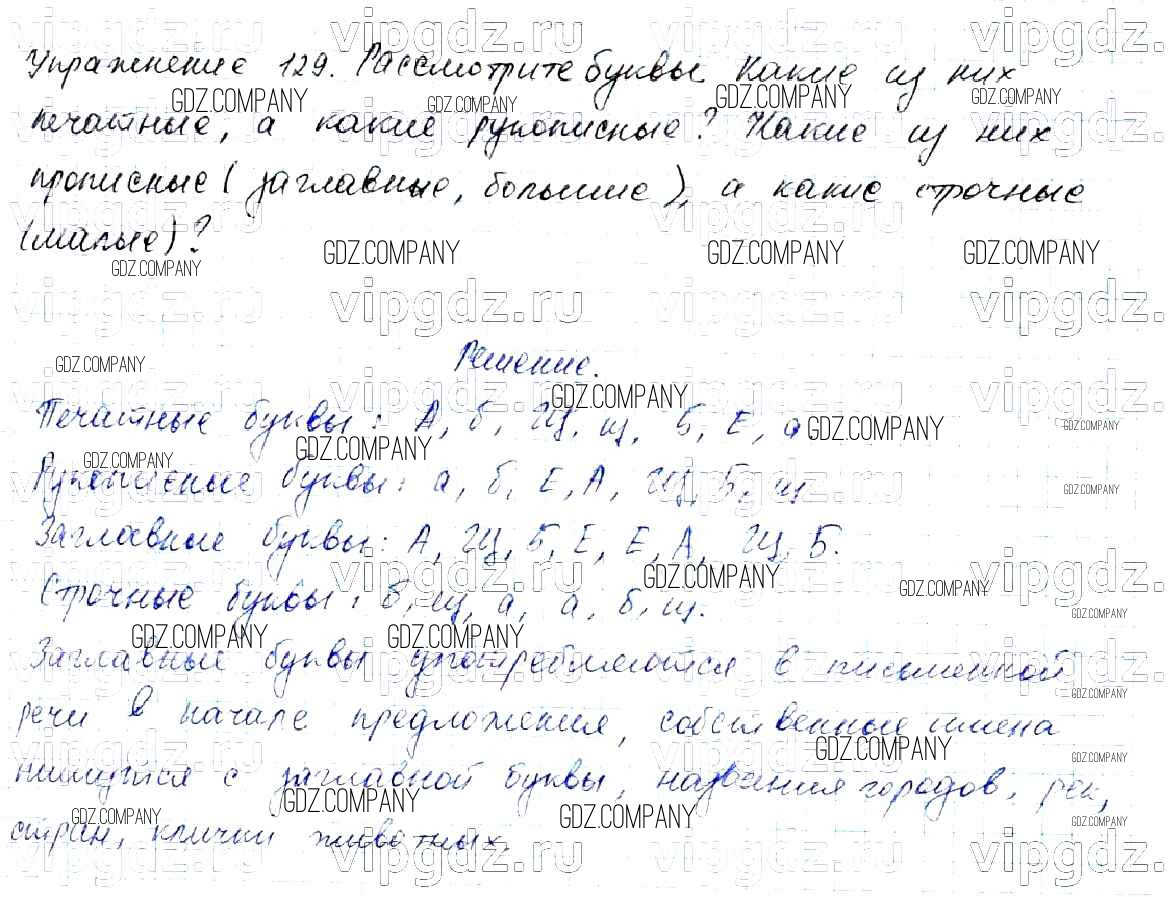 Упражнение 129. Рассмотрите буквы. Какие из них
печатные, а какие рукописные? Какие из них
прописные (заглавные, большие), а какие строчные
(малые)?
Решение.
Печатные буквы: А, б, Щ, щ, Б, Е, а
Рукописные буквы: а, б, Е, А, Щ, Б, щ
Заглавные буквы: А, Щ, Б, Е, Е, А, Щ, Б.
Строчные буквы: б, щ, а, а, б, щ.
Заглавные буквы употребляются в письменной
речи в начале предложения, собственные имена
пишутся с заглавной буквы, названия городов, рек,
стран, клички животных.
vipgdz.ru
GDZ.COMPANY